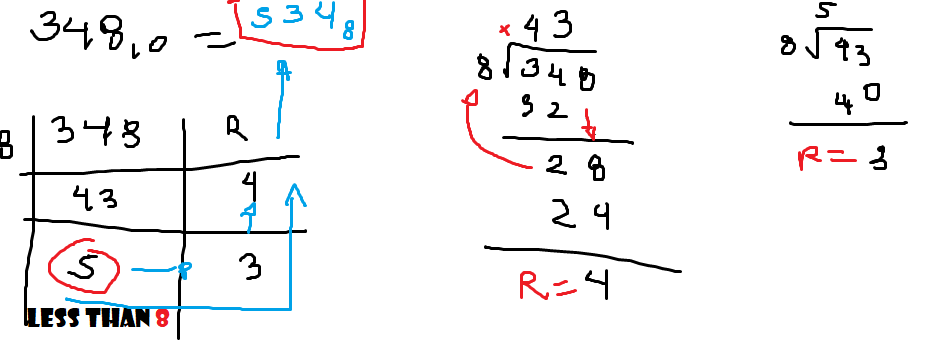 348₁₀ = 5348
8 348 R
43 4
5 3
LESS THAN 8
× 43
8√348
32
28
24
R=4
5
8√43
40
R=3